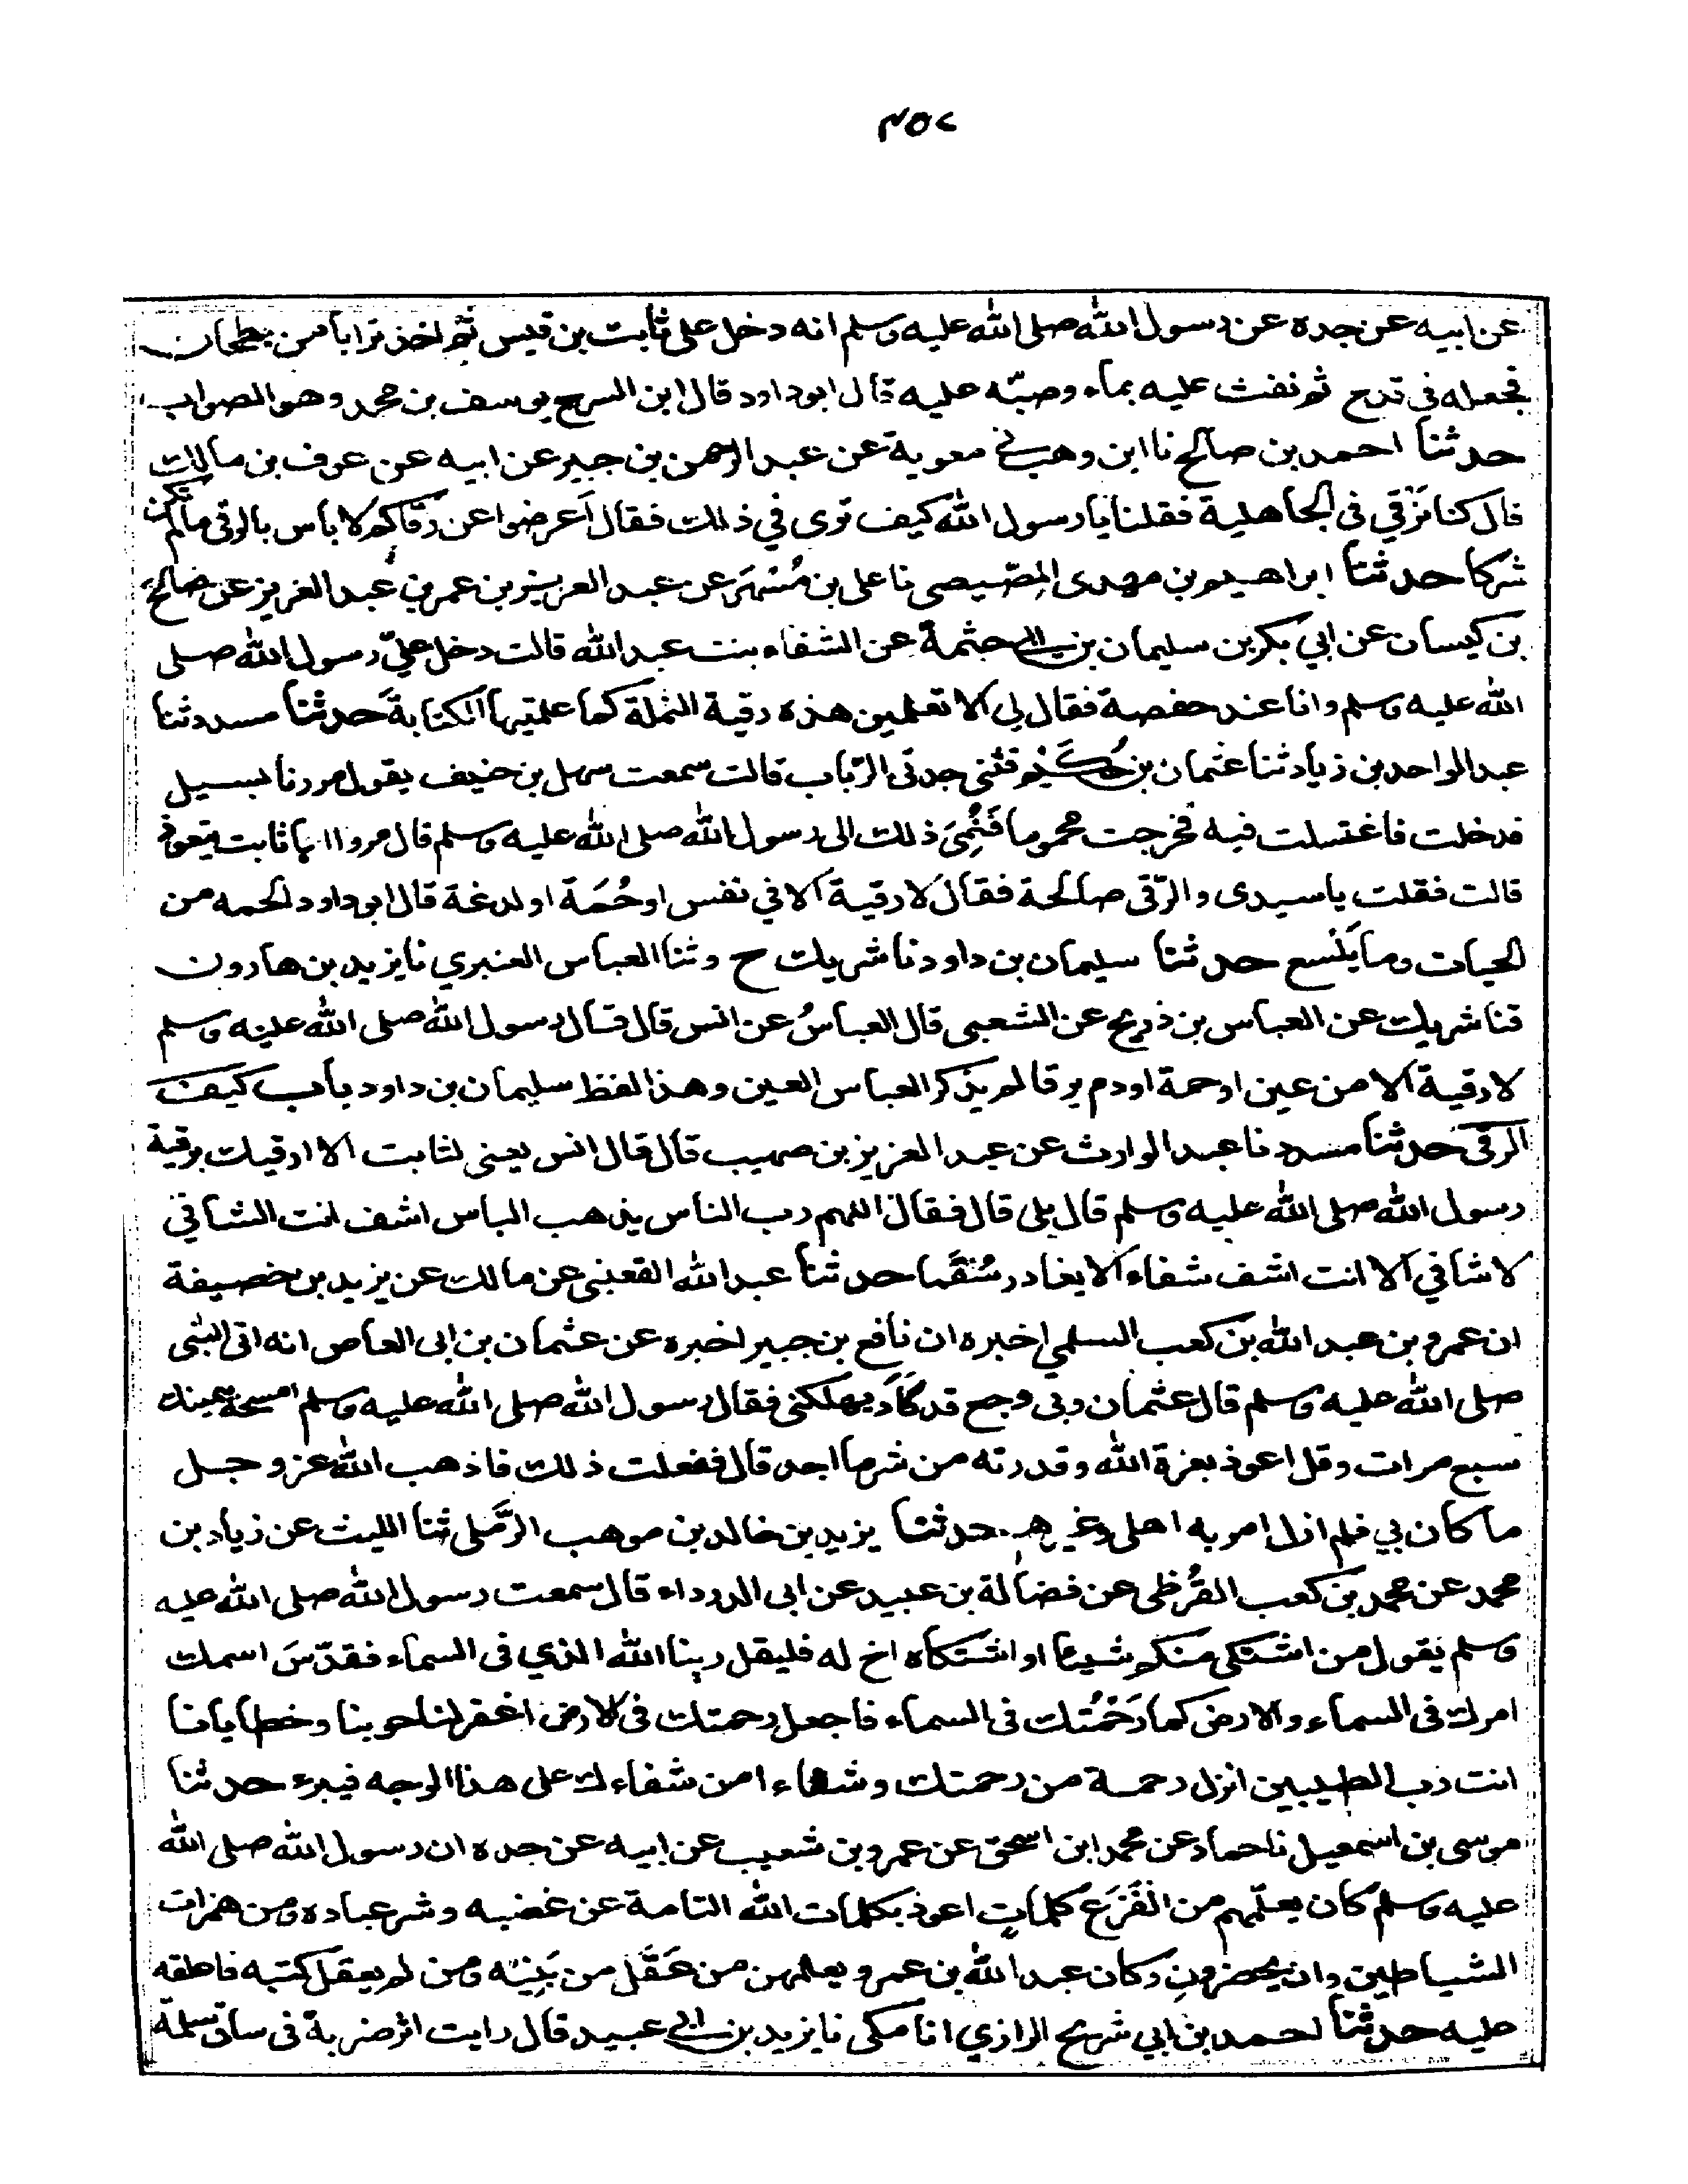 ٢٥٧
عن ابيه عن جده عن رسول الله صلى الله عليه وسلم انه دخل على ثابت بن قيس ثم اخذ ترابا من بطحان
فجعله في قدح ثم نفث عليه بماء وصبّه عليه قال ابو داود قال ابن السرح يوسف بن محمد وهو الصواب
حدثنا احمد بن صالح نا ابن وهب معوية عن عبد الرحمن بن جبير عن ابيه عن عوف بن مالك
قال كنا نَرْقي في الجاهلية فقلنا يا رسول الله كيف ترى في ذلك فقال اَعرضوا عن رقاكم لا باس بالرقى ما لم تكن
شركا حدثنا ابراهيم بن مهدى المِصّيصي نا على بن مُسْهَر عن عبد العزيز بن عمر بن عبد العزيز عن صالح
بن كيسان عن ابي بكر بن سليمان بن ابي حثمة عن الشفاء بنت عبد الله قالت دخل عليّ رسول الله صلى
الله عليه وسلم وانا عند حفصة فقال لي الا تعلمين هذه رقية النملة كما علمتيها الكتابةَ حدثنا مسدد ثنا
عبد الواحد بن زياد ثنا عثمان بن حُكَيْم قثنى جدتى الرّباب قالت سمعت سهل بن حنيف يقول مررنا بسيل
فدخلت فاغتسلت فيه فخرجت محموما فَنُمِىَ ذلك الى رسول الله صلى الله عليه وسلم قال مروا ابا ثابت يتعوذ
قالت فقلت يا سيدى والرّقى صالحة فقال لا رقية الا في نفس او حُمَة او لدغة قال ابو داود الحمه من
الحيات وما يَلْسع حدثنا سليمان بن داود نا شريك ح وثنا العباس العنبري نا يزيد بن هارون
قنا شريك عن العباس بن ذريح عن الشعبى قال العباسُ عن انس قال قال رسول الله صلى الله عليه وسلم
لا رقية الا من عين او حمة او دم يرقا لم يذكر العباس العين وهذا لفظ سليمان بن داود باب كيف
الرقى حدثنا مسدد نا عبد الوارث عن عبد العزيز بن صهيب قال قال انس يعنى لثابت الا ارقيك برقية
رسول الله صلى الله عليه وسلم قال بلى قال فقال اللهم رب الناس يذهب الباس اشف انت الشافي
لا شافي الا انت اشف شفاء الا يغادر سُقما حدثنا عبد الله القعنبى عن مالك عن يزيد بن خصيفة
ان عمرو بن عبد الله بن كعب السلمي اخبره ان نافع بن جبير اخبره عن عثمان بن ابى العاص انه اتى النبى
صلى الله عليه وسلم قال عثمان وبى وجع قد كاد يهلكنى فقال رسول الله صلى الله عليه وسلم امسحه بيمينك
سبع مرات وقل اعوذ بعزة الله وقدرته من شر ما اجد قال ففعلت ذلك فاذهب الله عز وجل
ما كان بي فلم ازل امر به اهلى وغيرهم حدثنا يزيد بن خالد بن موهب الرّملى ثنا الليث عن زياد بن
محمد عن محمد بن كعب القُرظى عن فضالة بن عبيد عن ابى الدرداء قال سمعت رسول الله صلى الله عليه
وسلم يقول من اشتكى منكم شيئا او اشتكاه اخ له فليقل ربنا الله الذي في السماء فقدّسَ اسمك
امرك في السماء والارض كما رَحْمُتك في السماء فاجعل رحمتك في الارض اغفر لنا حوبنا وخطايانا
انت رب الطيبين انزل رحمة من رحمتك وشفاء من شفاءك على هذا الوجه فيبرء حدثنا
موسى بن اسمعيل نا حماد عن محمد ابن اسحق عن عمرو بن شعيب عن ابيه عن جده ان رسول الله صلى الله
عليه وسلم كان يعلّمهم من الفَزَع كلماتٍ اعوذ بكلمات الله التامة عن غضبه وشر عباده ومن همزات
الشياطين وان يحضرونِ وكان عبد الله بن عمرو يعلمهن من عَقَل من بَنِيْه ومن لم يعقل كتبه فاعلقه
عليه حدثنا احمد بن ابي شريح الرازي انا مكى نا يزيد بن ابى عبيد قال رايت اثر ضربة فى ساق سلمة